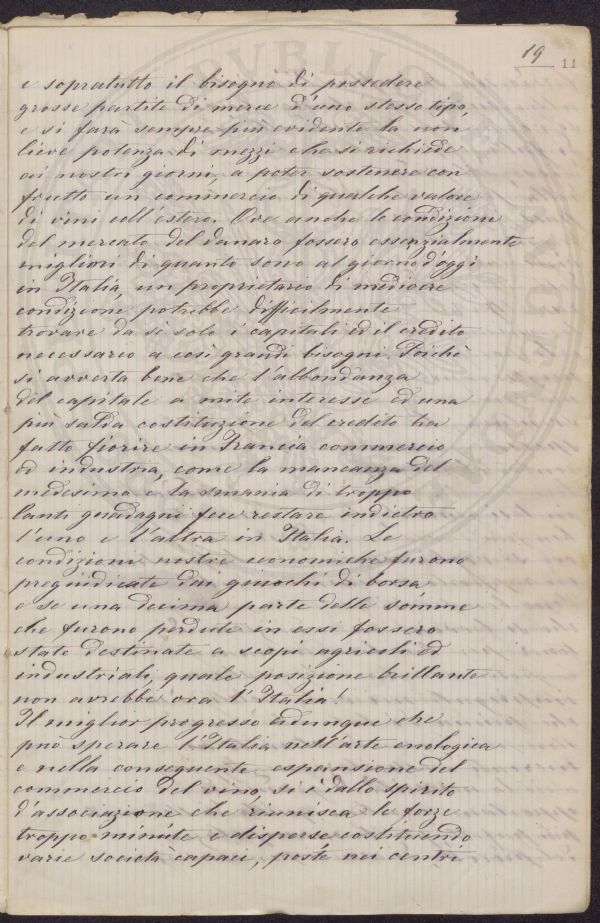 19
11
e sopratutto il bisogno di possedere
grosse partite di merce d'uno stesso tipo,
e si farà sempre più evidente la non
lieve potenza di mezzi che si richiede
ai nostri giorni, a poter sostenere con
frutto un commercio di qualche valore
di vini coll'estero. Ove anche le condizione
del mercato del danaro fossero essenzialmente
migliori di quanto sono al giorno d'oggi
in Italia, un proprietario di mediocre
condizione potrebbe difficilmente
trovare da sè solo i capitali ed il credito
necessario a così grandi bisogni. Poichè
si avverta bene che l'abbondanza
del capitale a mite interesse ed una
più salda costituzione del credito ha
fatto fiorire in Francia commercio
ed industria, come la mancanza del
medesimo e la smania di troppo
lauti guadagni fece restare indietro
l'uno e l'altra in Italia. Le
condizioni nostre economiche furono
pregiudicate dai giuochi di borsa
e se una decima parte delle somme
che furono perdute in essi fossero
state destinate a scopi agricoli ed
industriali, quale posizione brillante
non avrebbe ora l'Italia!
Il miglior progresso adunque che
può sperare l'Italia nell'arte enologica
e nella conseguente espansione del
commercio del vino, si è dallo spirito
d'associazione che riunisca le forze
troppo minute e disperse costituendo
varie società capaci, poste nei centri
PVBLIC